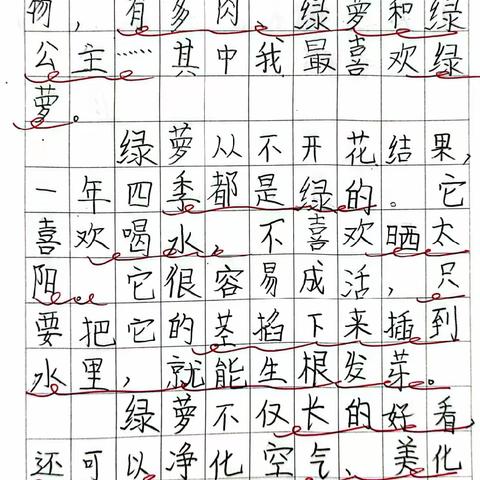 物，有多肉、绿萝和绿
公主……其中我最喜欢绿
萝。
绿萝从不开花结果，
一年四季都是绿的。它
喜欢喝水，不喜欢晒太
阳。它很容易成活，只
要把它的茎掐下来插到
水里，就能生根发芽。
绿萝不仅长的好看，
还可以净化空气、美化